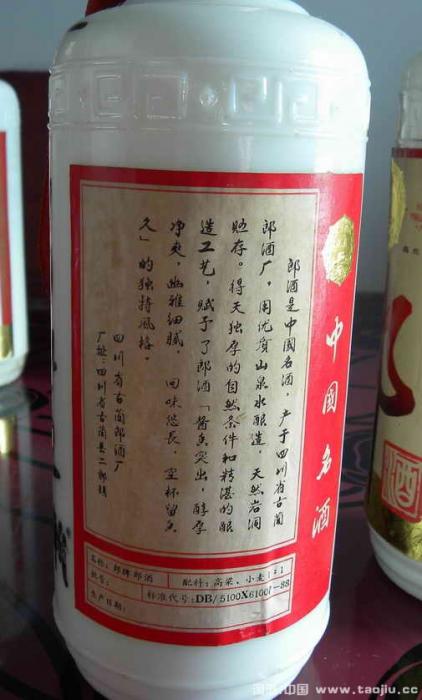 中国名酒
郎酒是中国名酒，产于四川省古蔺
郎酒厂，用优质山泉水酿造，天然岩洞
贮存。得天独厚的自然条件和精湛的酿
造工艺，赋予了郎酒「酱香突出，醇厚
净爽，幽雅细腻，回味悠长，空杯留香
久」的独特风格。
四川省古蔺郎酒厂
厂址：四川省古蔺县二郎镇
名称：郎牌郎酒
配料：高粱、小麦1:1
批号：
标准代号：DB/5100X61001-88
生产日期：
酒
中国 www.taojiu.cc